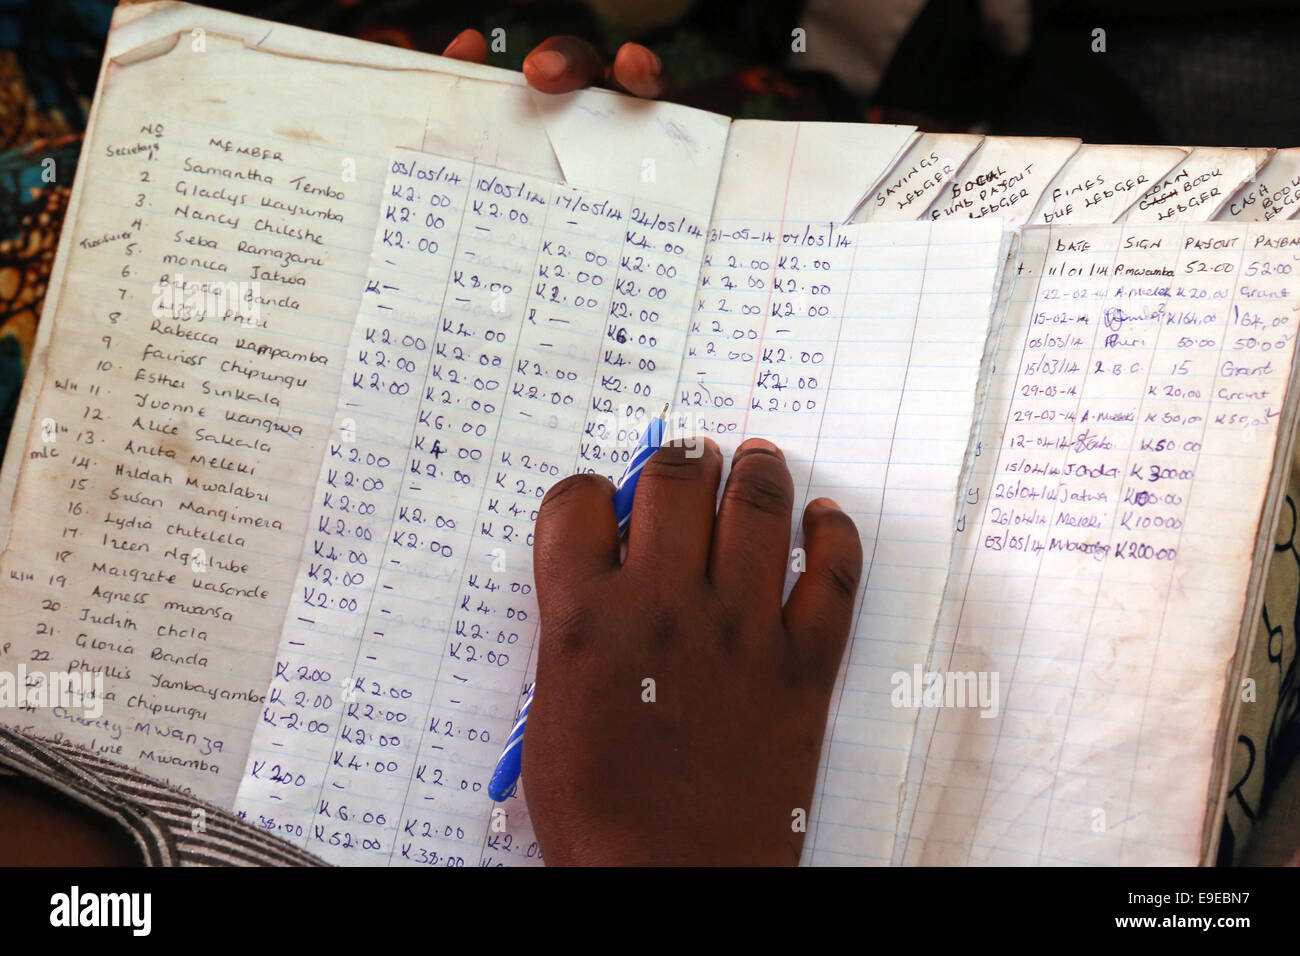 NO MEMBER
Secretary 1. Samantha Tembo
2. Gladys Kayumba
3. Nancy Chileshe
Treasurer 4. Seba Ramazani
5. monica Jatwa
6. Brenda Banda
7. Lizzy Phiri
8. Rabecca Kampamba
9. Fairness Chipungu
10. Esther Sunkala
K/H 11. Yvonne Kangwa
12. Alice Sakala
K/H 13. Anita Meleki
m/c 14. Hildah Mwalabu
15. Susan Mangimela
16. Lydia Chitelela
17. Ireen Ngulube
18. Maigrete Kasonde
K/H 19. Agness mwansa
20. Judith Chola
21. Gloria Banda
22. Phyllis Yambayamba
23. Lydia Chipungu
24 Charety Mwanza
Mwamba
03/05/14 10/05/14 17/05/14 24/05/14 31-05-14 07/05/14
K2.00 K2.00 - K4.00 K2.00 K2.00
K2.00 - K2.00 K2.00 K2.00 K2.00
K2.00 - K2.00 K2.00 K2.00 K2.00
- K8.00 K2.00 K2.00 K2.00 -
K- - - K6.00 K2.00 K2.00
- K4.00 - K4.00 - K2.00
K2.00 K2.00 K2.00 K2.00 K2.00 K2.00
K2.00 K2.00 K2.00 K2.00 K2.00
K2.00 K2.00 - K2.00
- K6.00 K2.00
- K4.00 K2.00
K2.00 K2.00
K2.00 -
K2.00 K2.00
K4.00 K2.00 K4.00
K2.00 - K4.00
K2.00 - K2.00
- - K2.00
K2.00 K2.00 -
K2.00 K2.00
K-2.00 K2.00 K2.00
- K4.00 -
K2.00 - K2.00
- K6.00 -
K38.00 K52.00 K2.00 K2.00
K38.00
SAVINGS LEDGER
SOCIAL FUND PAYOUT LEDGER
FINES DUE LEDGER
LOAN CASH BOOK LEDGER
CASH BOOK
DATE SIGN PAYOUT PAYBA
11/01/14 P.mwamba 52.00 52.00
22-02-14 A.Meleki K20,00 Grant
15-02-14 K164,00 164,00
08/03/14 Phiri 50.00 50.00
15/03/14 15 Grant
29-03-14 K20,00 Grant
29-03-14 A.Meleki K50,00 K50,00
12-04-14 K50.00
15/04/14 K300.00
26/04/14 Jatwa K100.00
26/04/14 Meleki K100.00
03/05/14 K200.00
a alamy
alamy
Image ID: E9EBN7
www.alamy.com